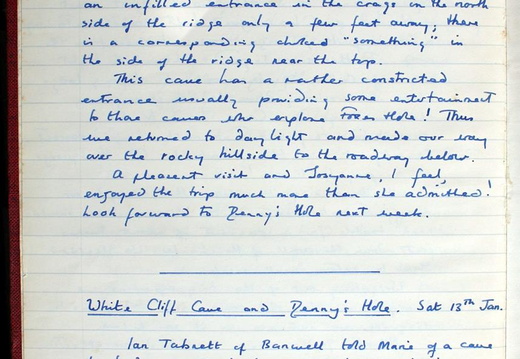 an infilled entrance in the crags in the north
side of the ridge only a few feet away; there
is a corresponding choked "something" in
the side of the ridge near the top.
This cave has a rather constricted
entrance usually providing some entertainment
to those cavers who explore Foxes Hole! Thus
we returned to daylight and made our way
over the rocky hillside to the roadway below.
A pleasant visit and Josyanne, I feel,
enjoyed the trip much more than she admitted!
Look forward to Denny's Hole next week.
White Cliff Cave and Denny's Hole. Sat 13th Jan.
Ian Tabrett of Banwell told Marie of a cave